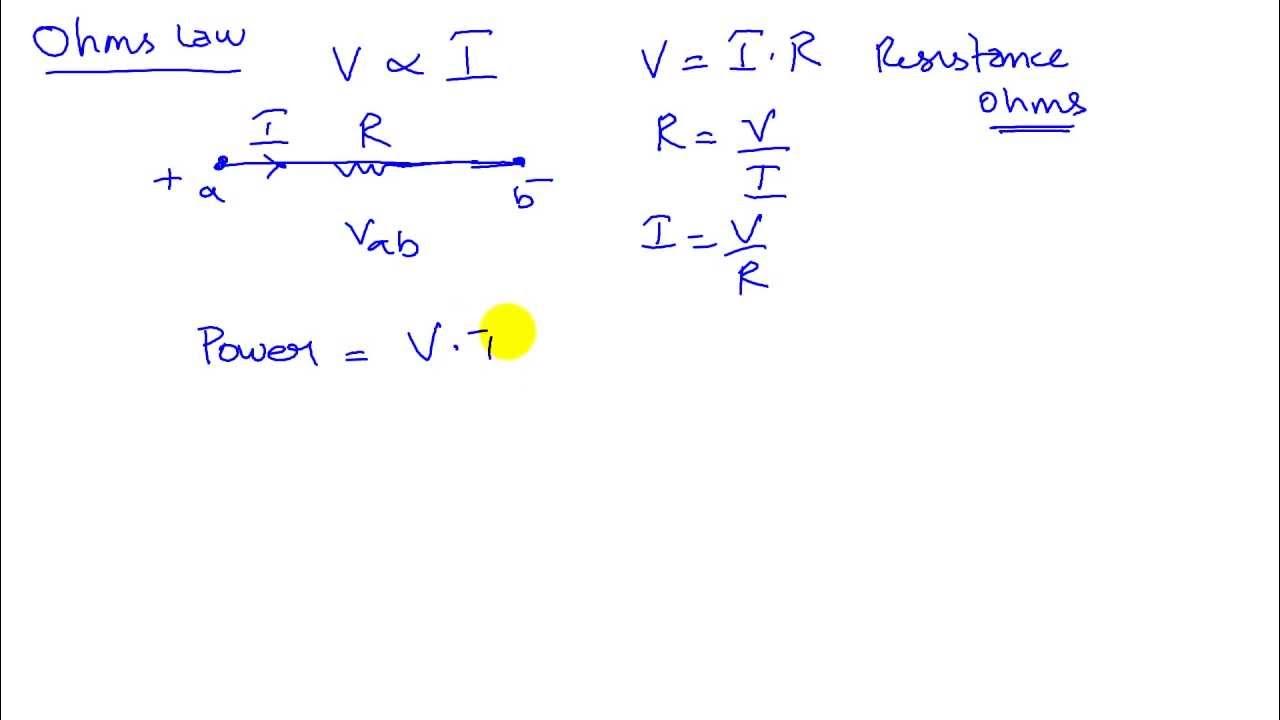 Ohms Law
V ∝ I
V = I . R Resistance
ohms
I R
+ a b −
Vab
R = V/I
I = V/R
Power = V .